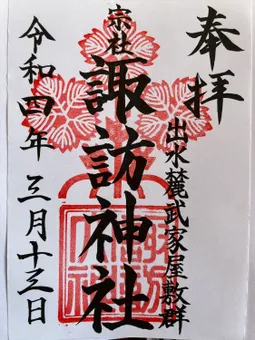 奉拝
出水麓武家屋敷群
宗社
諏訪神社
令和四年 三月十三日